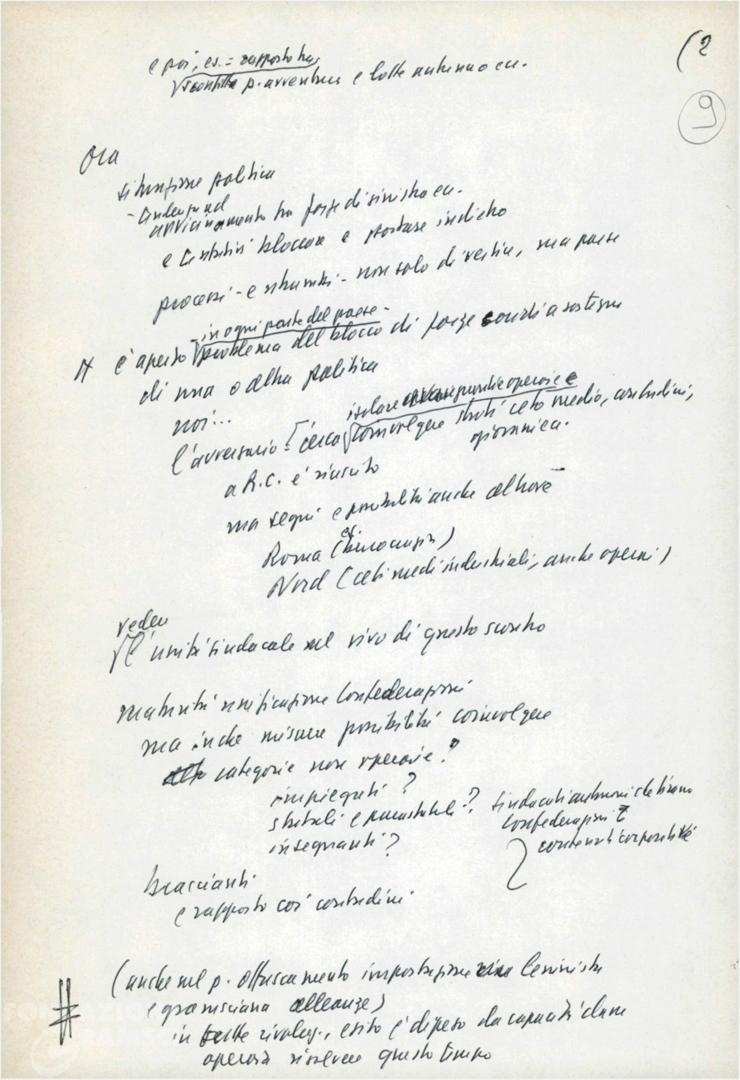 (2
9
e poi, es. = rapporto tra
scontitta p. avventura e lotte autunno ecc.
Ora
situazione politica
- tendenza ad
avvicinamento tra forze di sinistra ecc.
e tentativi bloccare e portare indietro
processi - e strumenti - non solo di vertice, ma paese
- in ogni parte del paese -
è aperto problema del blocco di forze sociali a sostegno
di una o altra politica
noi...
isolare avanguardie operaie e
l'avversario = cerca coinvolgere strati ceto medio, contadini,
a R.C. è riuscito
ma segni e possibilità anche altrove
es
Roma (burocrazia)
Nord (ceti medi industriali, anche operai)
vedere
l'unità sindacale nel vivo di questo scontro
maturità unificazione Confederazioni
ma in che misura possibilità coinvolgere
categorie non operaie?
impiegati?
statali e parastatali? sindacati autonomi che tirano
Confederazioni
insegnanti? contenuti corporativi
braccianti
e rapporto coi contadini
(anche nel p. offuscamento impostazione leninista
e gramsciana alleanze)
in lotte rivoluz., esito è dipeso da capacità classe
operaia risolvere questo